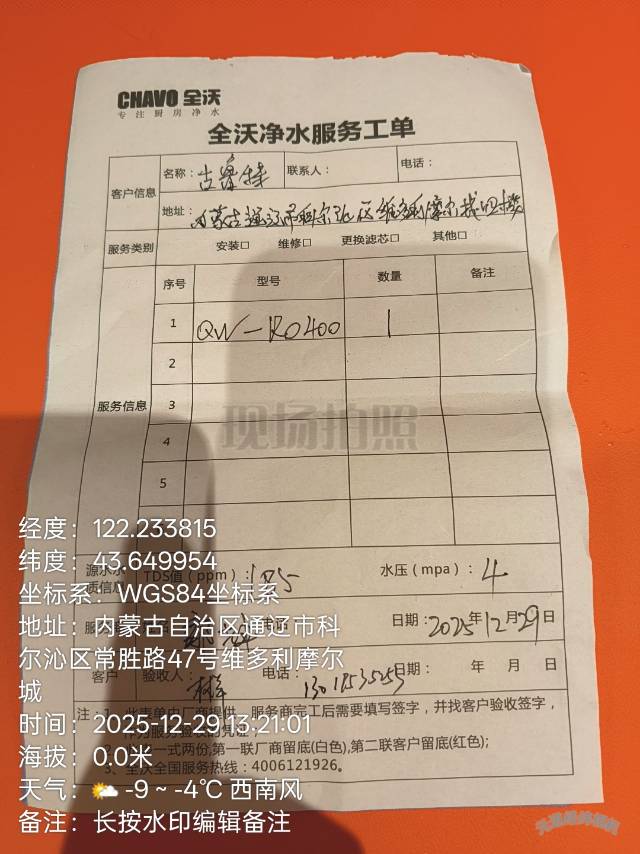 CHAVO 全沃
专注厨房净水
全沃净水服务工单
客户信息 名称： 联系人： 电话：
地址：内蒙古通辽市科尔沁区维多利摩尔城四楼
服务类别 安装□ 维修□ 更换滤芯□ 其他□
服务信息 序号 型号 数量 备注
1 QW-RO400 1
2
3
4
5
现场拍照
源水水质信息 TDS值（ppm）：185 水压（mpa）：4
日期：2025年12月29日
客户 验收人： 电话： 日期： 年 月 日
注：1、此表单由厂商提供，服务商完工后需要填写签字，并找客户验收签字，
作为服务验收的凭证；
一式两份,第一联厂商留底(白色),第二联客户留底(红色);
3、全沃全国服务热线：4006121926。
经度：122.233815
纬度：43.649954
坐标系：WGS84坐标系
地址：内蒙古自治区通辽市科
尔沁区常胜路47号维多利摩尔
城
时间：2025-12-29 13:21:01
海拔：0.0米
天气：-9 ~ -4℃ 西南风
备注：长按水印编辑备注